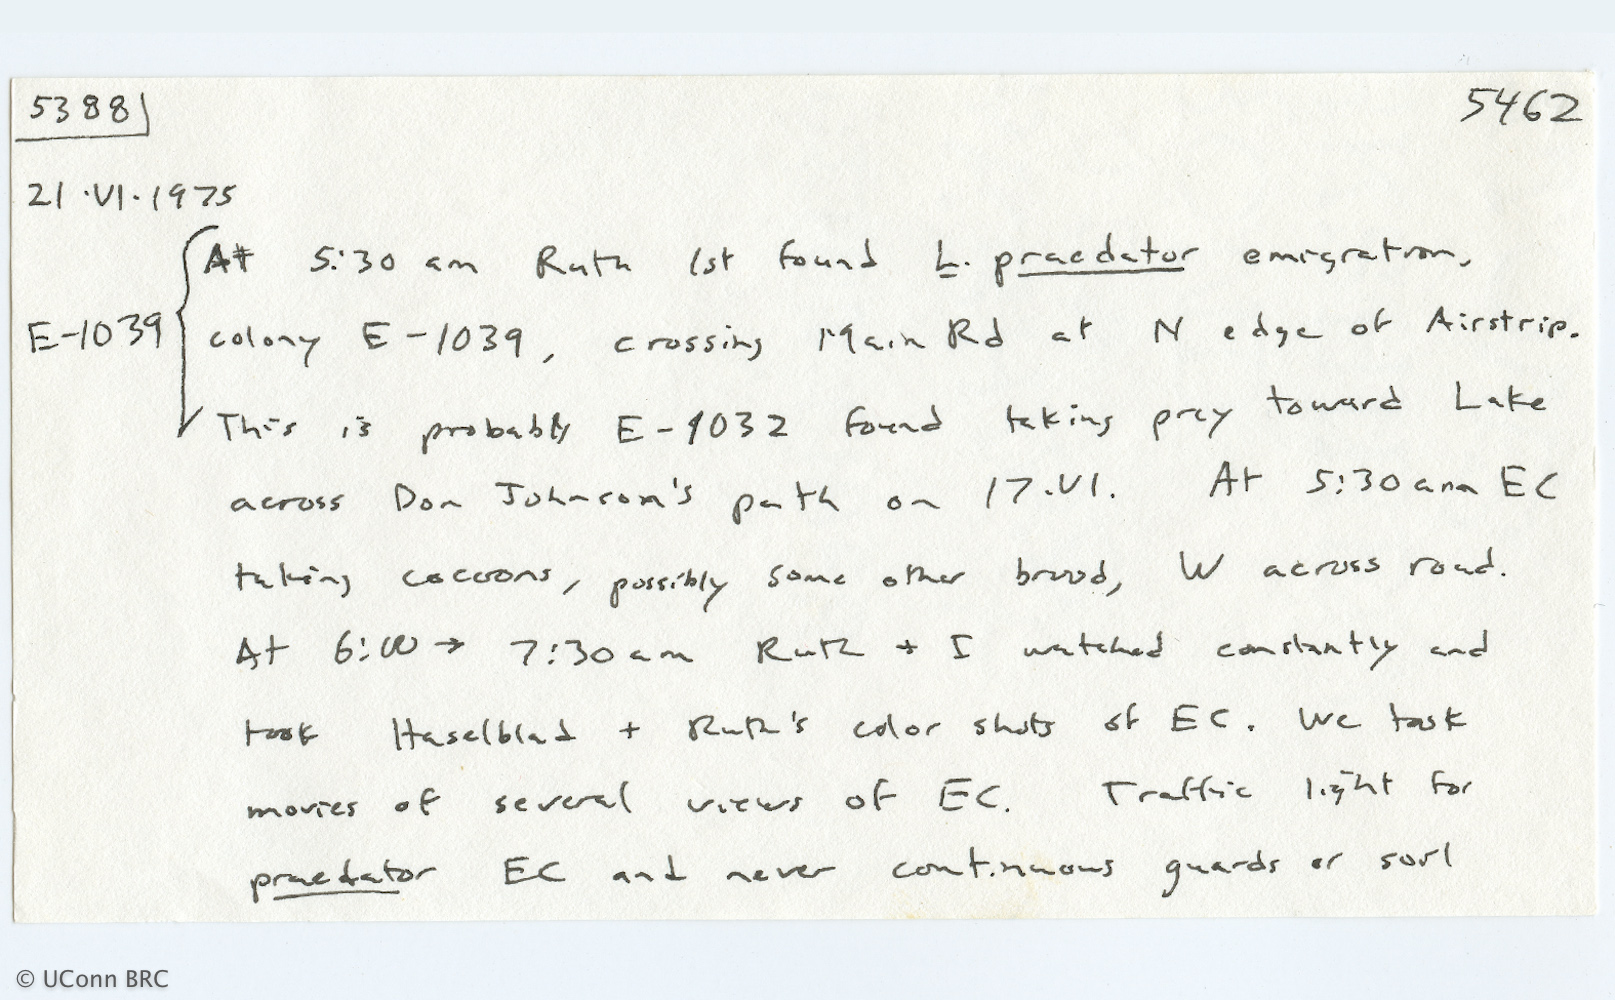 5388 5462
21.VI.1975
At 5:30 am Ruth 1st found L. praedator emigration,
E-1039 colony E-1039, crossing Main Rd at N edge of Airstrip.
This is probably E-1032 found taking prey toward Lake
across Don Johnson's path on 17.VI. At 5:30 am EC
taking cocoons, possibly some other brood, W across road.
At 6:00 → 7:30 am Ruth + I watched constantly and
took Haselblad + Ruth's color shots of EC. We took
movies of several views of EC. Traffic light for
praedator EC and never continuous guards or soil
© UConn BRC